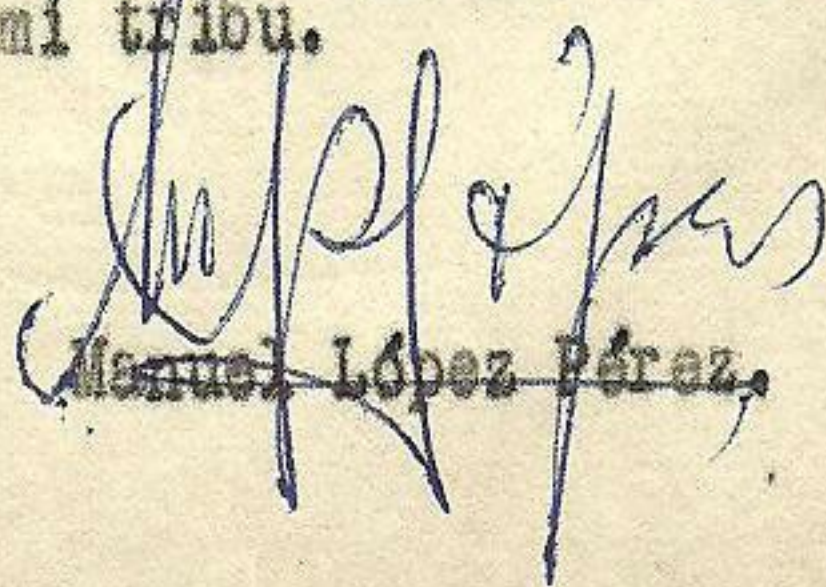 mi tribu.
Manuel López Pérez.